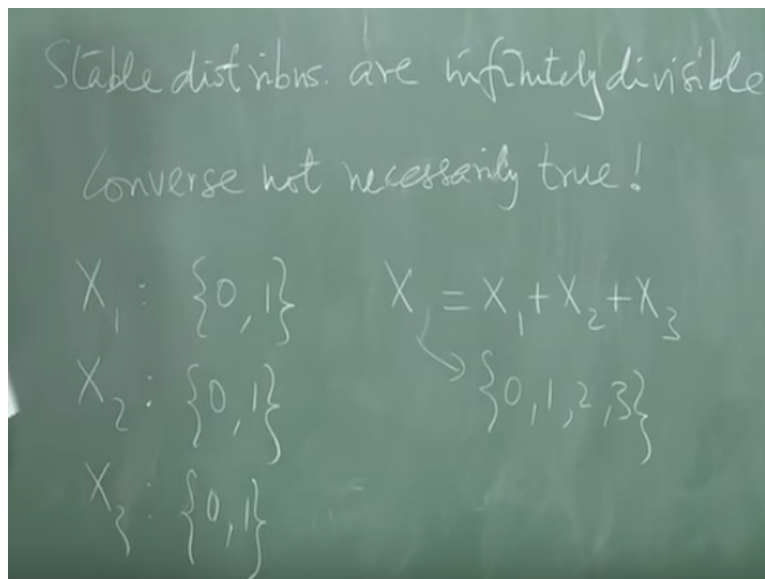 Stable distribns. are infinitely divisible
Converse not necessarily true!
X₁ : {0,1} X = X₁+X₂+X₃
X₂ : {0,1} {0,1,2,3}
X₃ : {0,1}